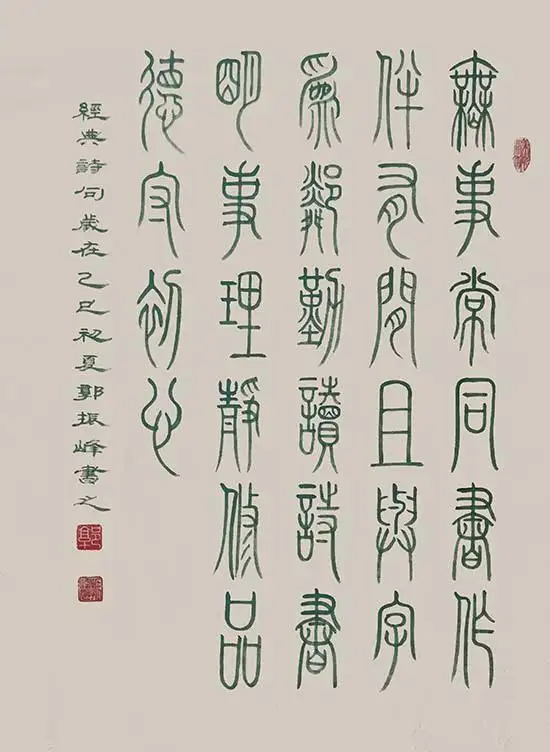 無事常同書作
伴有閒且與字
為鄰勤讀詩書
明事理靜修品
德守初心
經典詩句歲在乙巳初夏鄭振峰書之